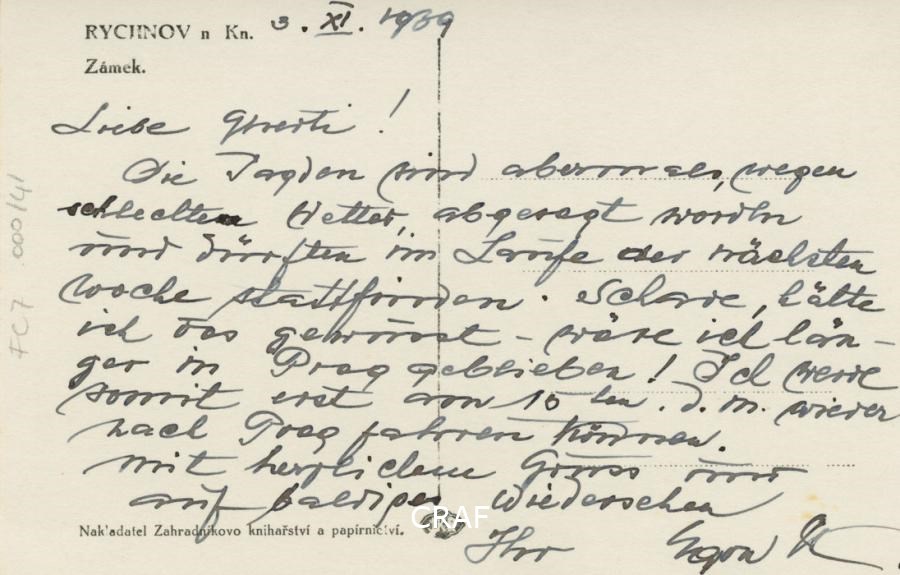 RYCHNOV n Kn. 3. XI. 1939
Zámek.
Liebe !
Die Jagden sind abermals, wegen
schlechten Wetter, abgesagt worden
und dürften im Laufe der nächsten
Woche stattfinden. Schade, hätte
ich das gewusst - wäre ich län-
ger in Prag geblieben! Ich werde
somit erst am 10 ten. d. M. wieder
nach Prag fahren können.
Mit herzlichem Gruss und
auf baldiges Wiedersehen
Ihr Egon K
Nakladatel Zahradníkovo knihařství a papírnictví.
CRAF
FC7 000/41